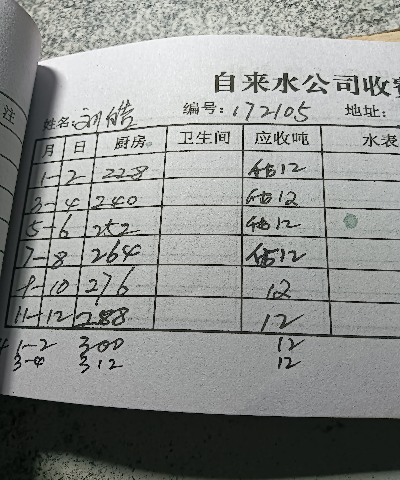 注
自来水公司收费
姓名:刘皓 编号:172105 地址:
月 日 厨房 卫生间 应收吨 水表
1-2 228 估12
3-4 240 估12
5-6 252 估12
7-8 264 估12
9-10 276 12
11-12 288 12
1-2 300 12
3-4 312 12